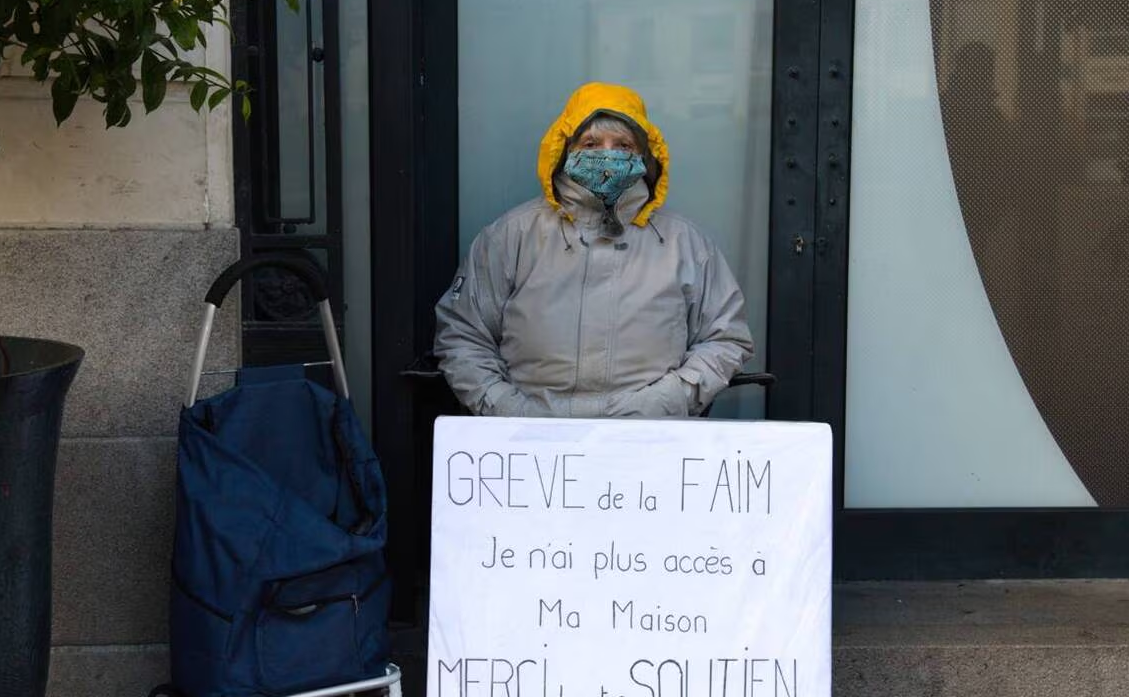 GREVE de la FAIM
Je n'ai plus accès à
Ma Maison
MERCI SOUTIEN